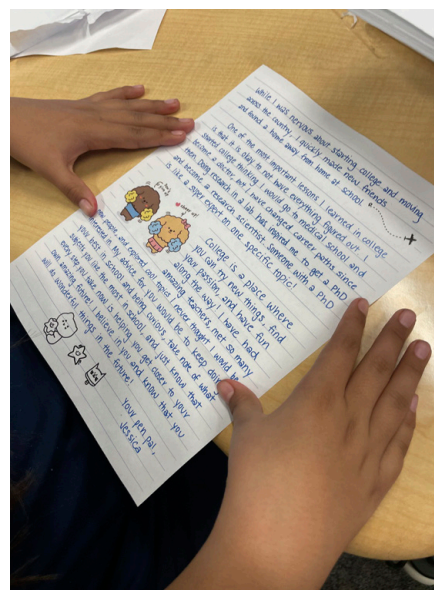 While I was nervous about starting college and moving
across the country, I quickly made new friends
and found a home away from home at school.
One of the most important lessons I learned in college
is that it is okay to not have everything figured out. I
started college thinking I would go to medical school and
become a doctor, but I have changed career paths since
then. Doing research in a lab has inspired me to get a PhD
and become a research scientist. Someone with a PhD
is like a super expert on one specific topic!
College is a place where
you can try new things, find
your passion, and have fun
along the way. I have had
amazing teachers, met so many
people, and explored cool topics I never thought I would be
interested in. My advice for you would be to keep doing
your best in school and being curious. Take note of what
subjects you like the most in school, and just know that
every step you take now is helping you get closer to your
amazing future! I believe in you and know that you
will do wonderful things in the future!
Your pen pal,
Jessica